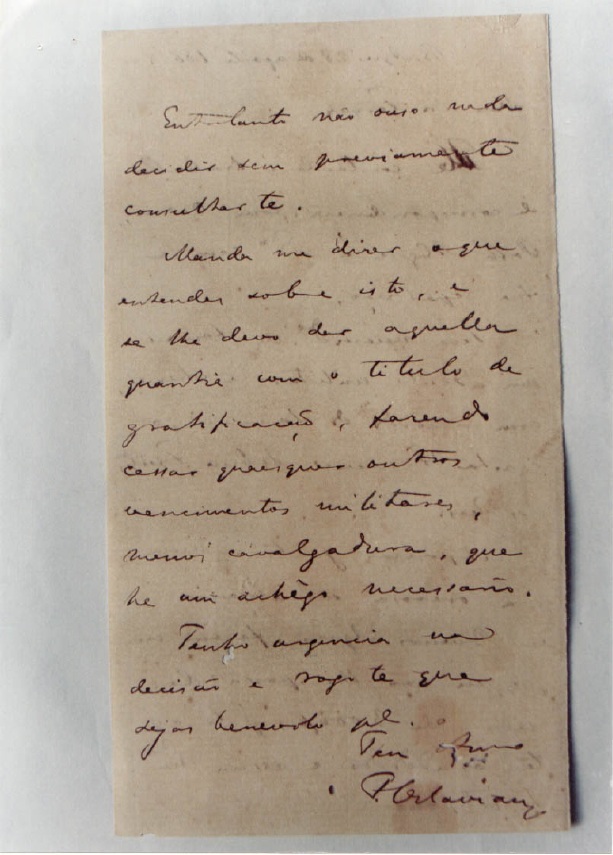 Entretanto não ouso nada
decidir sem previamente
consultar te.
Manda me dizer o que
entendes sobre isto, e
se lhe devo dar aquella
quantia com o titulo de
gratificação, fazendo
cessar quaesquer outros
vencimentos militares,
menos cavalgadura, que
he um achêgo necessario.
Tenho urgencia na
decisão e rogo te que
sejas benevolo
Teu
F Octaviano